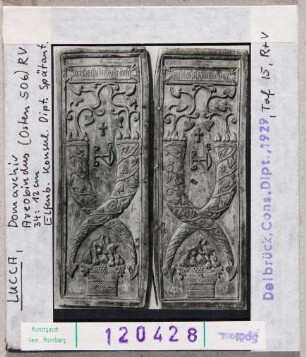 LUCCA, Domarchiv
Areobindus (Osten 506) RV
34:12 cm
Elfenb. Konsul. Dipt. Spätant.
Delbrück, Cons. Dipt., 1929, Taf 15, R+V
Kunstgesch.
Sem. Hamburg
120428
Spätant.